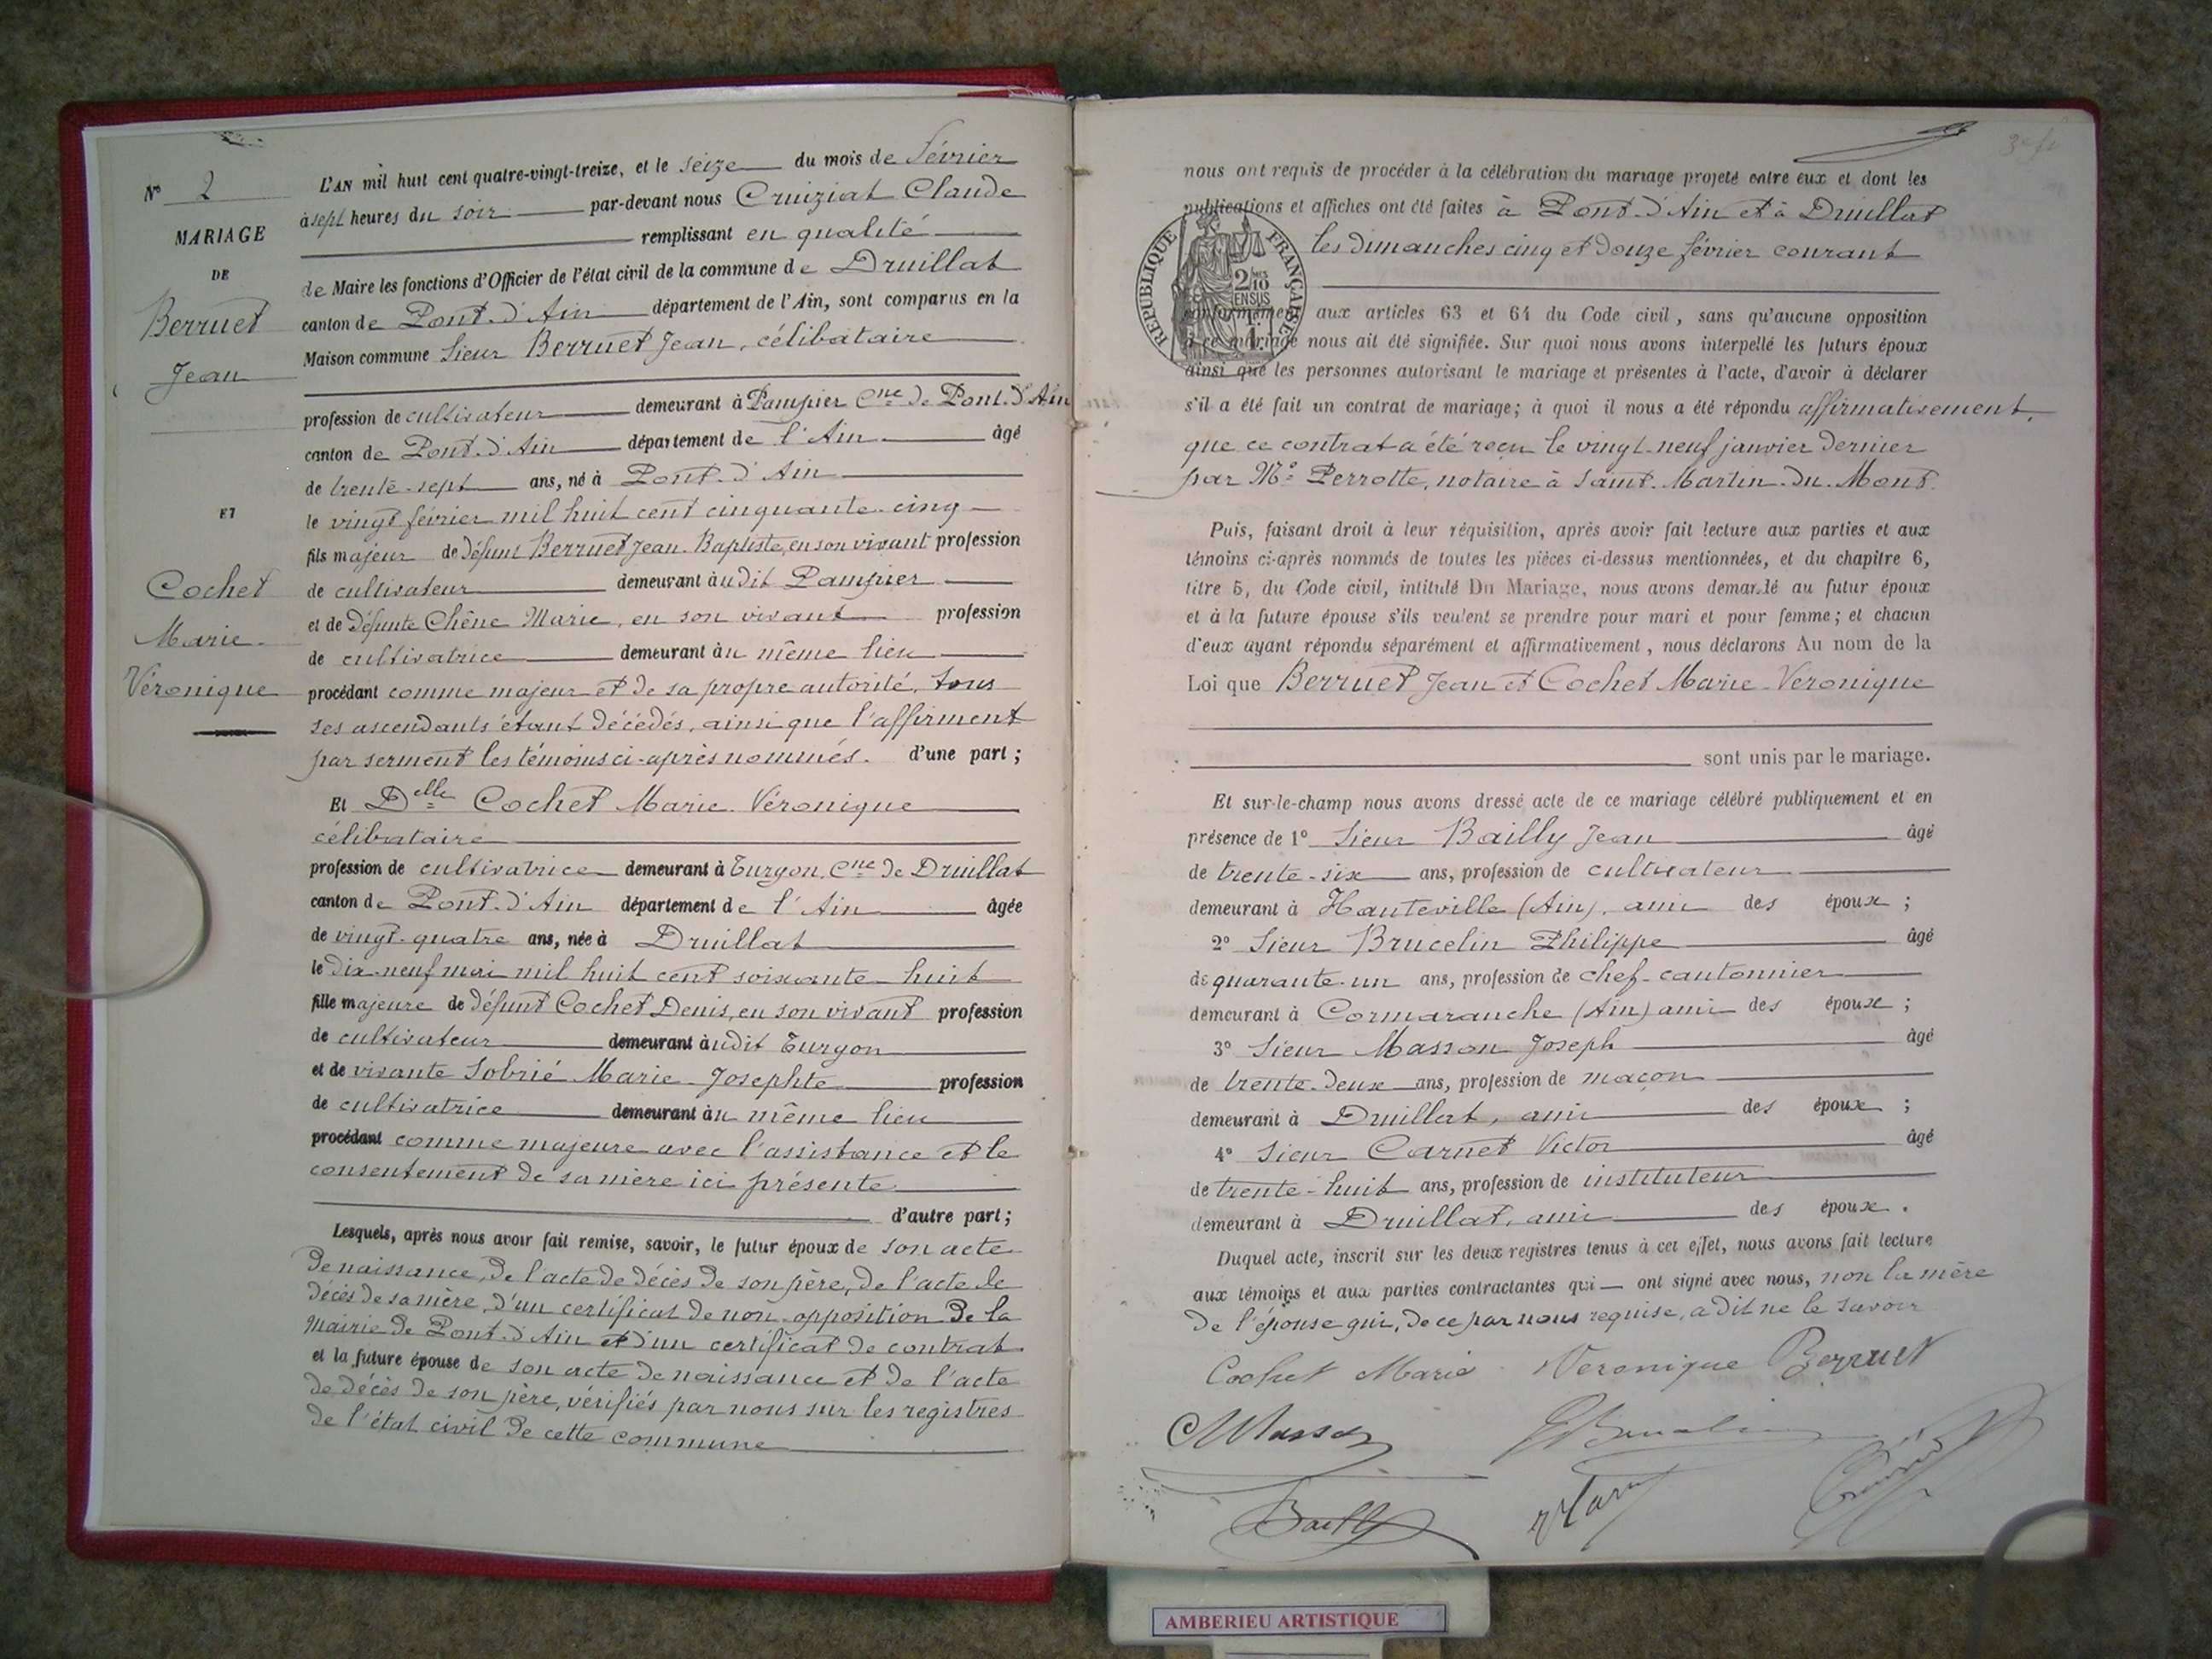 N° 2
MARIAGE
DE
Berruet
Jean
ET
Cochet
Marie-
Véronique
L'AN mil huit cent quatre-vingt-treize, et le seize du mois de février
à sept heures du soir par-devant nous Cruiziat Claude
remplissant en qualité
de Maire les fonctions d'Officier de l'état civil de la commune de Druillat
canton de Pont-d'Ain département de l'Ain, sont comparus en la
Maison commune Sieur Berruet Jean, célibataire
profession de cultivateur demeurant à Pampier Cne de Pont-d'Ain
canton de Pont-d'Ain département de l'Ain âgé
de trente-sept ans, né à Pont-d'Ain
le vingt février mil huit cent cinquante-cinq
fils majeur de défunt Berruet Jean-Baptiste, en son vivant profession
de cultivateur demeurant audit Pampier
et de défunte Chêne Marie, en son vivant profession
de cultivatrice demeurant au même lieu
procédant comme majeur et de sa propre autorité, tous
ses ascendants étant décédés, ainsi que l'affirment
par serment les témoins ci-après nommés. d'une part ;
Et Delle Cochet Marie-Véronique
célibataire
profession de cultivatrice demeurant à Turgon, Cne de Druillat
canton de Pont-d'Ain département de l'Ain âgée
de vingt-quatre ans, née à Druillat
le dix-neuf mai mil huit cent soixante-huit
fille majeure de défunt Cochet Denis, en son vivant profession
de cultivateur demeurant audit Turgon
et de vivante Sobrié Marie-Josephte profession
de cultivatrice demeurant au même lieu
procédant comme majeure avec l'assistance et le
consentement de sa mère ici présente
d'autre part ;
Lesquels, après nous avoir fait remise, savoir, le futur époux de son acte
de naissance, de l'acte de décès de son père, de l'acte de
décès de sa mère, d'un certificat de non-opposition de la
mairie de Pont-d'Ain et d'un certificat de contrat
et la future épouse de son acte de naissance et de l'acte
de décès de son père, vérifiés par nous sur les registres
de l'état civil de cette commune
nous ont requis de procéder à la célébration du mariage projeté entre eux et dont les
publications et affiches ont été faites à Pont-d'Ain et à Druillat
les dimanches cinq et douze février courant
RÉPUBLIQUE FRANÇAISE
2/10
EN SUS
conformément aux articles 63 et 64 du Code civil, sans qu'aucune opposition
à ce mariage nous ait été signifiée. Sur quoi nous avons interpellé les futurs époux
ainsi que les personnes autorisant le mariage et présentes à l'acte, d'avoir à déclarer
s'il a été fait un contrat de mariage; à quoi il nous a été répondu affirmativement,
que ce contrat a été reçu le vingt-neuf janvier dernier
par Me Perrotte, notaire à Saint-Martin-du-Mont.
Puis, faisant droit à leur réquisition, après avoir fait lecture aux parties et aux
témoins ci-après nommés de toutes les pièces ci-dessus mentionnées, et du chapitre 6,
titre 5, du Code civil, intitulé Du Mariage, nous avons demandé au futur époux
et à la future épouse s'ils veulent se prendre pour mari et pour femme; et chacun
d'eux ayant répondu séparément et affirmativement, nous déclarons Au nom de la
Loi que Berruet Jean et Cochet Marie-Véronique
sont unis par le mariage.
Et sur-le-champ nous avons dressé acte de ce mariage célébré publiquement et en
présence de 1° Sieur Bailly Jean âgé
de trente-six ans, profession de cultivateur
demeurant à Hauteville (Ain), ami des époux ;
2° Sieur Brucelin Philippe âgé
de quarante-un ans, profession de chef-cantonnier
demeurant à Cormaranche (Ain) ami des époux ;
3° Sieur Masson Joseph âgé
de trente-deux ans, profession de maçon
demeurant à Druillat, ami des époux ;
4° Sieur Carnet Victor âgé
de trente-huit ans, profession de instituteur
demeurant à Druillat, ami des époux.
Duquel acte, inscrit sur les deux registres tenus à cet effet, nous avons fait lecture
aux témoins et aux parties contractantes qui ont signé avec nous, non la mère
de l'épouse qui, de ce par nous requise, a dit ne le savoir
Cochet Marie Veronique Berruet
Masson
Bailly
AMBERIEU ARTISTIQUE